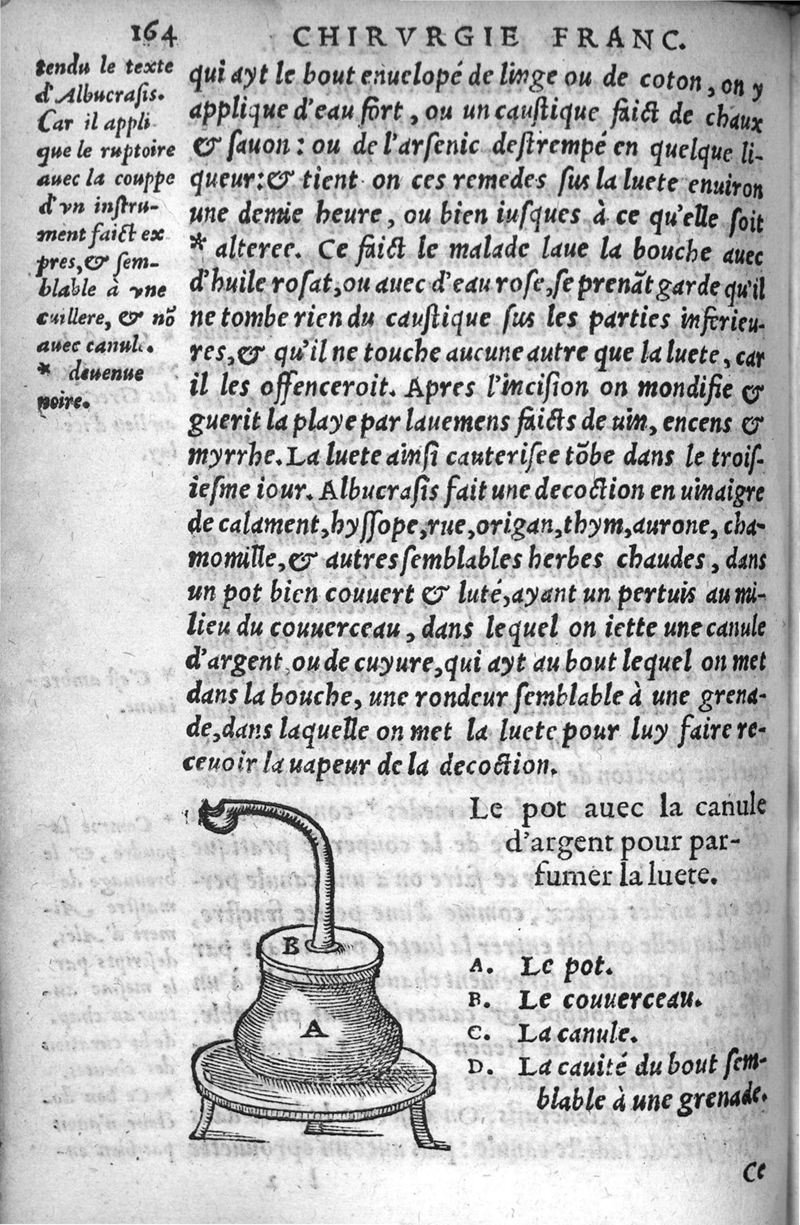 164 CHIRVRGIE FRANC.
tendu le texte
d'Albucraſis.
Car il appli
que le ruptoire
auec la couppe
d'vn inſtru-
ment faict ex
pres, & ſem-
blable à vne
cuillere, & nō
auec canule.
* deuenue
noire.
qui ayt le bout enuelopé de linge ou de coton, on y
applique d'eau fort, ou un cauſtique faict de chaux
& ſauon: ou de l'arſenic deſtrempé en quelque li-
queur: & tient on ces remedes ſus la luete enuiron
une demie heure, ou bien iuſques à ce qu'elle ſoit
* alteree. Ce faict le malade laue la bouche auec
d'huile roſat, ou auec d'eau roſe, ſe prenāt garde qu'il
ne tombe rien du cauſtique ſus les parties inferieu-
res, & qu'il ne touche aucune autre que la luete, car
il les offenceroit. Apres l'inciſion on mondifie &
guerit la playe par lauemens faicts de uin, encens &
myrrhe. La luete ainſi cauteriſee tōbe dans le troiſ-
ieſme iour. Albucraſis fait une decoction en uinaigre
de calament, hyſſope, rue, origan, thym, aurone, cha-
momille, & autres ſemblables herbes chaudes, dans
un pot bien couuert & luté, ayant un pertuis au mi-
lieu du couuerceau, dans lequel on iette une canule
d'argent ou de cuyure, qui ayt au bout lequel on met
dans la bouche, une rondeur ſemblable à une grena-
de, dans laquelle on met la luete pour luy faire re-
ceuoir la uapeur de la decoction.
Le pot auec la canule
d'argent pour par-
fumer la luete.
B
A
A. Le pot.
B. Le couuerceau.
C. La canule.
D. La cauité du bout ſem-
blable à une grenade.
Ce